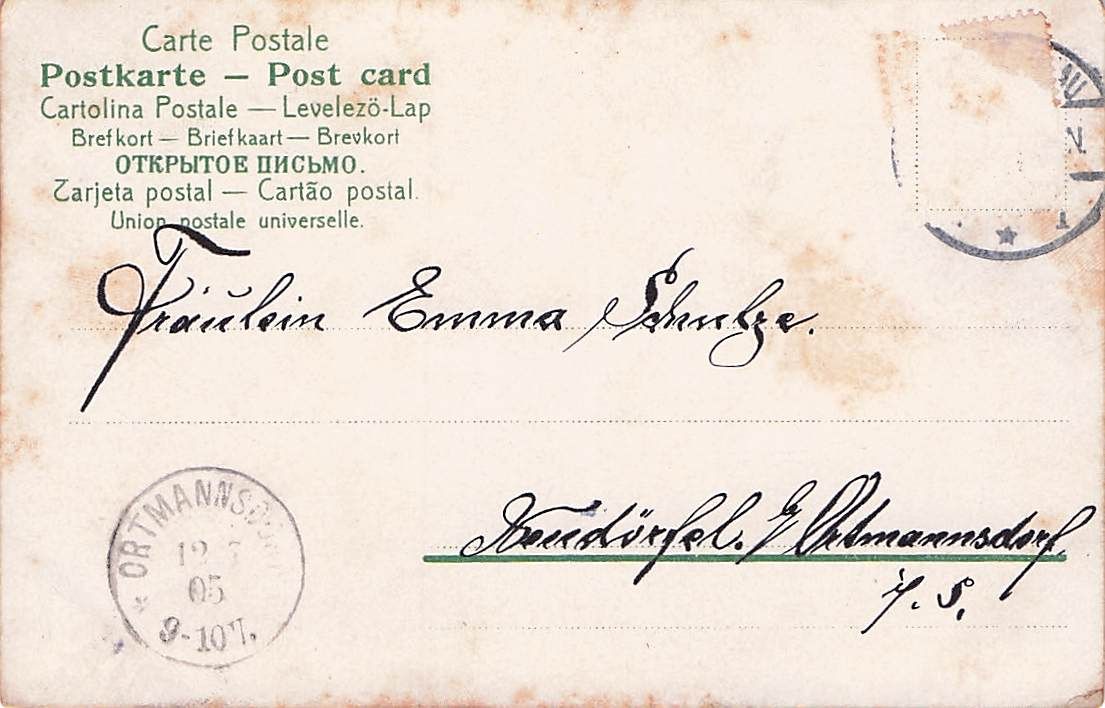 Carte Postale
Postkarte — Post card
Cartolina Postale — Levelező-Lap
Brefkort — Briefkaart — Brevkort
ОТКРЫТОЕ ПИСЬМО.
Tarjeta postal — Cartão postal.
Union postale universelle.
Fräulein Emma Schulze.
Neudörfel. b/ Ortmannsdorf.
i. S.
ORTMANNSDORF
05
9-10V.